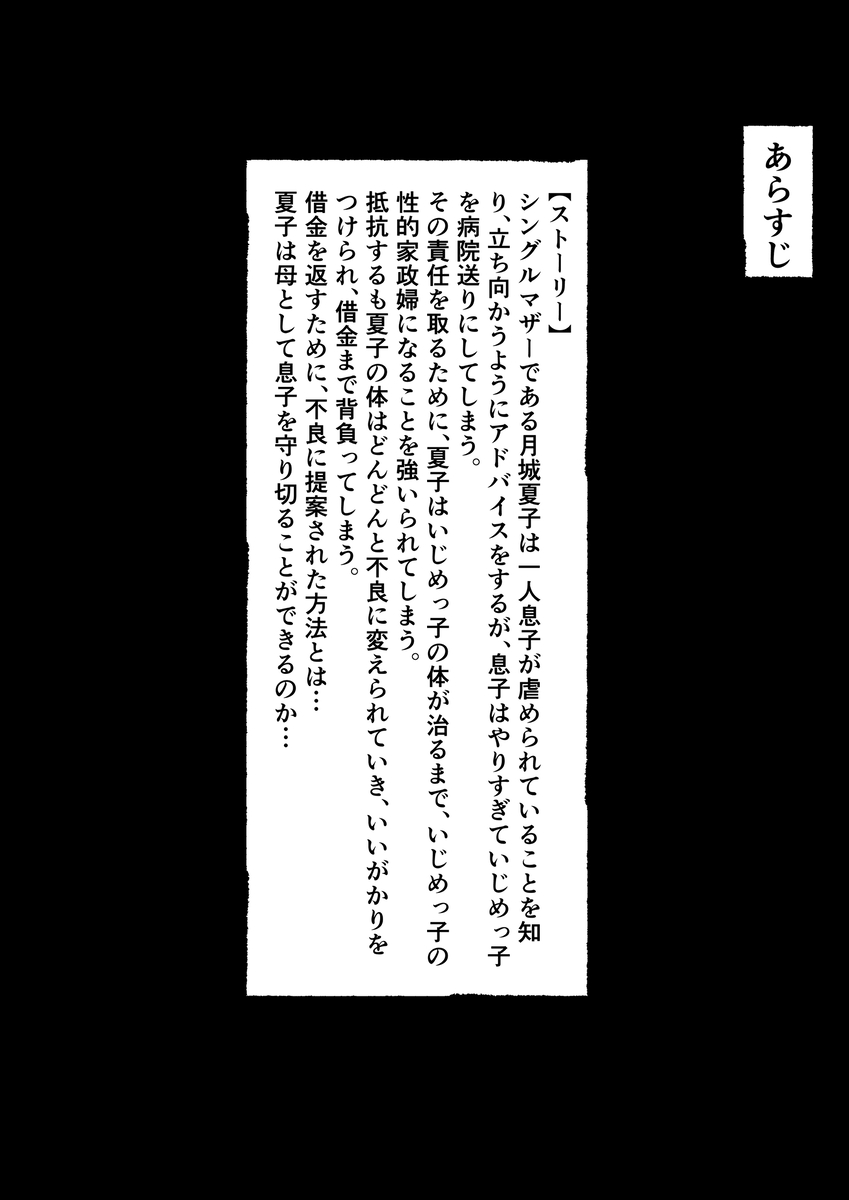 あらすじ
【ストーリー】
シングルマザーである月城夏子は一人息子が虐められていることを知
り、立ち向かうようにアドバイスをするが、息子はやりすぎていじめっ子
を病院送りにしてしまう。
その責任を取るために、夏子はいじめっ子の体が治るまで、いじめっ子の
性的家政婦になることを強いられてしまう。
抵抗するも夏子の体はどんどんと不良に変えられていき、いいがかりを
つけられ、借金まで背負ってしまう。
借金を返すために、不良に提案された方法とは…
夏子は母として息子を守り切ることができるのか…